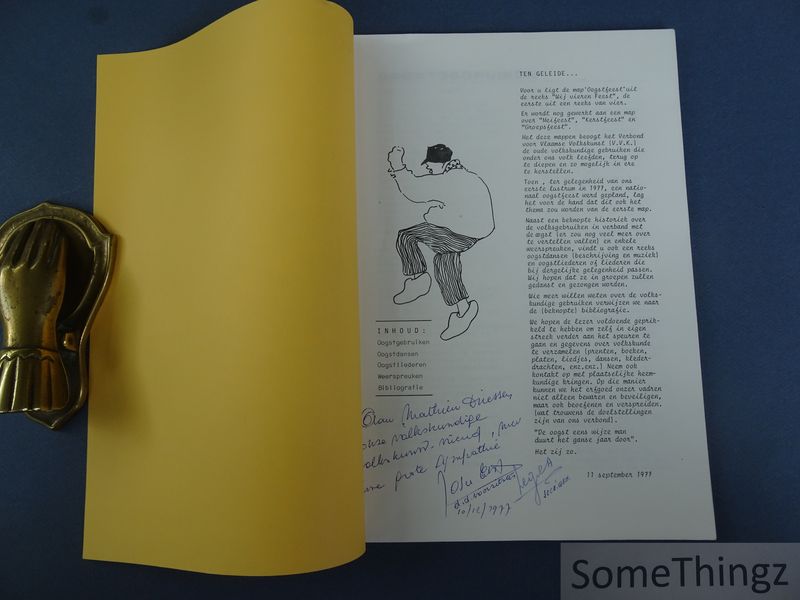 TEN GELEIDE...
Voor u ligt de map 'Oogstfeest' uit
de reeks "Wij vieren Feest", de
eerste uit een reeks van vier.
Er wordt nog gewerkt aan een map
over "Meifeest", "Kerstfeest" en
"Groepsfeest".
Met deze mappen beoogt het Verbond
voor Vlaamse Volkskunst (V.V.K.)
de oude volkskundige gebruiken die
onder ons volk leefden, terug op
te diepen en zo mogelijk in ere
te herstellen.
Toen , ter gelegenheid van ons
eerste lustrum in 1977, een natio-
naal oogstfeest werd gepland, lag
het voor de hand dat dit ook het
thema zou worden van de eerste map.
Naast een beknopte historiek over
de volksgebruiken in verband met
de oogst (er zou nog veel meer over
te vertellen vallen) en enkele
weerspreuken, vindt u ook een reeks
oogstdansen (beschrijving en muziek)
en oogstliederen of liederen die
bij dergelijke gelegenheid passen.
Wij hopen dat ze in groepen zullen
gedanst en gezongen worden.
Wie meer willen weten over de volks-
kundige gebruiken verwijzen we naar
de (beknopte) bibliografie.
We hopen de lezer voldoende geprik-
keld te hebben om zelf in eigen
streek verder aan het speuren te
gaan en gegevens over volkskunde
te verzamelen (prenten, boeken,
platen, liedjes, dansen, kleder-
drachten, enz.enz.) Neem ook
kontakt op met plaatselijke heem-
kundige kringen. Op die manier
kunnen we het erfgoed onzer vadren
niet alleen bewaren en beveiligen,
maar ook beoefenen en verspreiden.
(wat trouwens de doelstellingen
zijn van ons verbond).
"De oogst eens wijze man
duurt het ganse jaar door".
Het zij zo.
11 september 1977
INHOUD:
Oogstgebruiken
Oogstdansen
Oogstliederen
Weerspreuken
Bibliografie
Aan Mathieu Driessen,
onze volkskundige
volkskunst-vriend, met
grote sympathie
10/12/1977
SomeThingz